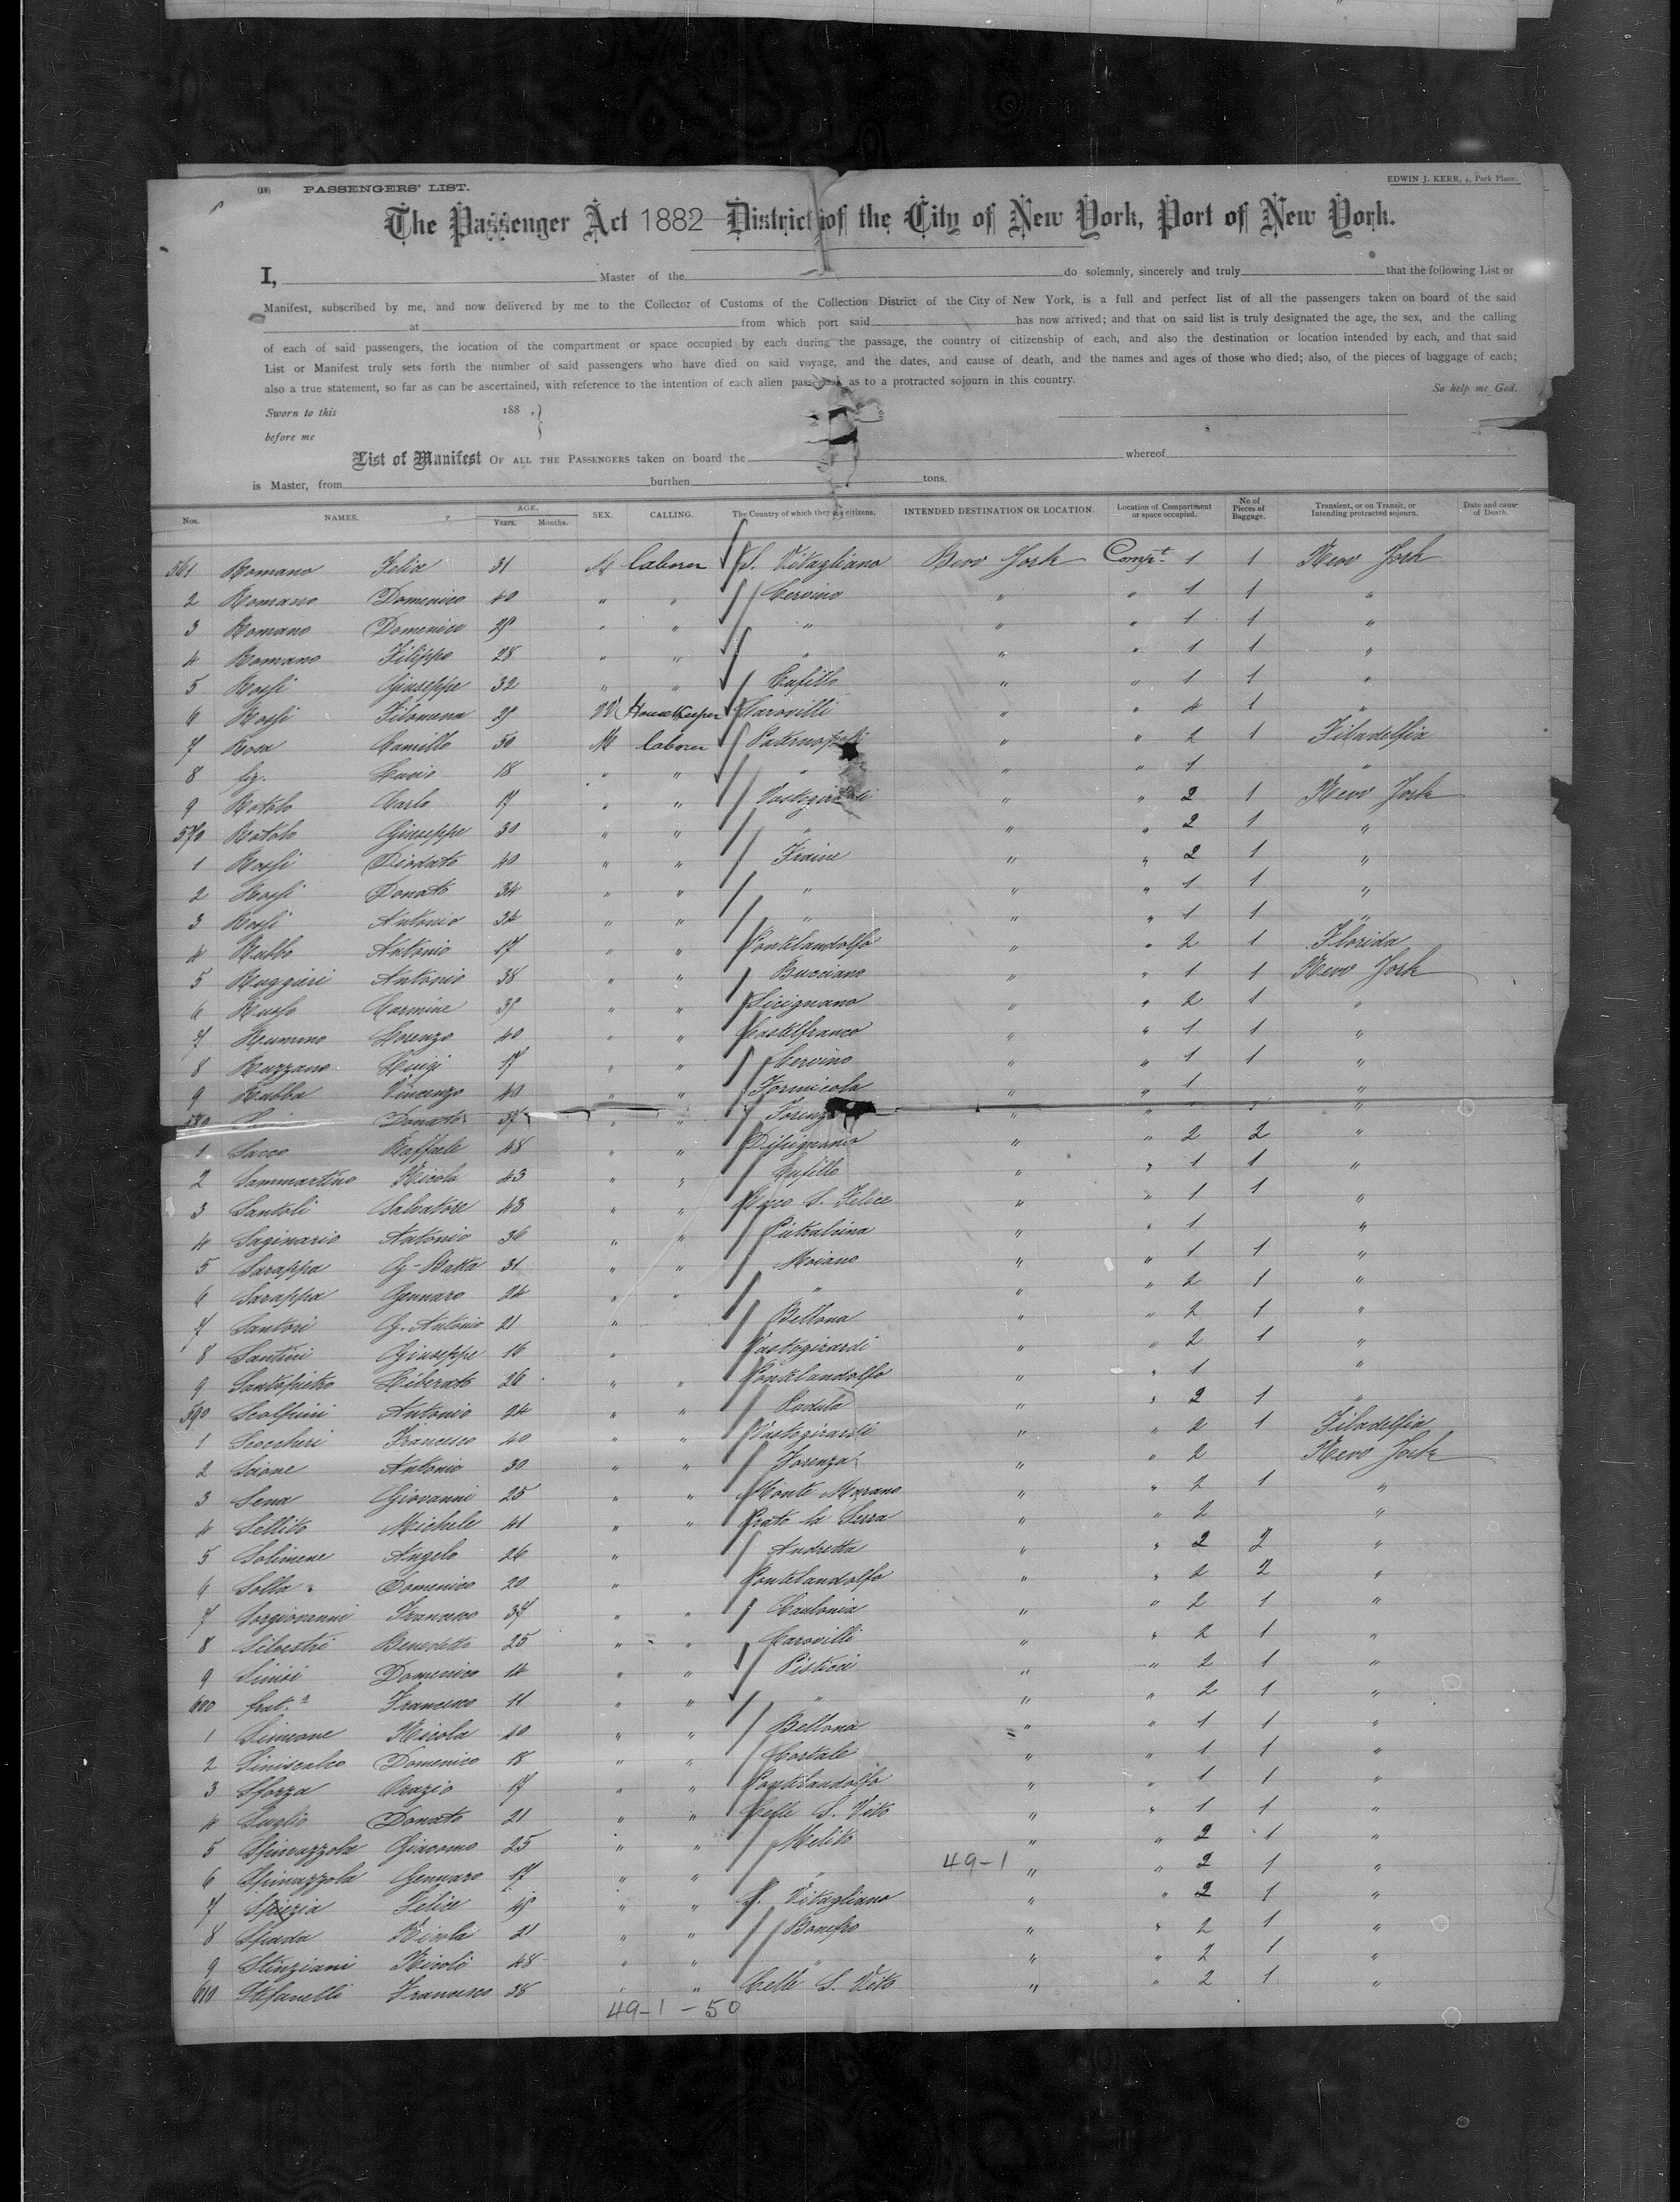 (18) PASSENGERS' LIST. EDWIN J. KERR, 4, Park Place.
The Passenger Act 1882 District of the City of New York, Port of New York.
I, Master of the do solemnly, sincerely and truly that the following List or
Manifest, subscribed by me, and now delivered by me to the Collector of Customs of the Collection District of the City of New York, is a full and perfect list of all the passengers taken on board of the said
at from which port said has now arrived; and that on said list is truly designated the age, the sex, and the calling
of each of said passengers, the location of the compartment or space occupied by each during the passage, the country of citizenship of each, and also the destination or location intended by each, and that said
List or Manifest truly sets forth the number of said passengers who have died on said voyage, and the dates, and cause of death, and the names and ages of those who died; also, of the pieces of baggage of each;
also a true statement, so far as can be ascertained, with reference to the intention of each alien passenger, as to a protracted sojourn in this country. So help me God.
Sworn to this 188 ,
before me
List of Manifest OF ALL THE PASSENGERS taken on board the whereof
is Master, from burthen tons.
Nos. NAMES. AGE. Years. Months. SEX. CALLING. The Country of which they are citizens. INTENDED DESTINATION OR LOCATION. Location of Compartment or space occupied. No of Pieces of Baggage. Transient, or on Transit, or Intending protracted sojourn. Date and cause of Death.
561 Romano Felice 31 M laborer S. Vitagliano New York Compt. 1 1 New York
2 Romano Domenico 40 " " Cervino " " 1 1 "
3 Romano Domenico 29 " " " " " 1 1 "
4 Romano Filippo 28 " " " " " 1 1 "
5 Rossi Giuseppe 32 " " Cufillo " " 1 1 "
6 Rossi Filomena 29 W Housekeeper Carovilli " " 4 1 "
7 Rosa Camillo 50 M laborer Paternopoli " " 2 1 Filadelfia
8 fig. Lucio 18 " " " " " 1 "
9 Rotolo Carlo 17 " " Vastogirardi " " 2 1 New York
570 Rotolo Giuseppe 30 " " " " " 2 1 "
1 Rossi Diodato 40 " " Fraine " " 2 1 "
2 Rossi Donato 34 " " " " " 1 1 "
3 Rossi Antonio 34 " " " " " 1 1 "
4 Rubbo Antonio 17 " " Pontelandolfo " " 2 1 Florida
5 Ruggieri Antonio 38 " " Bucciano " " 1 1 New York
6 Russo Carmine 39 " " Sicignano " " 2 1 "
7 Rummo Lorenzo 40 " " Castelfranco " " 1 1 "
8 Ruzzano Luigi 17 " " Cervino " " 1 1 "
9 Rubba Vincenzo 40 " " Formicola " " 1 "
580 Donato 37 " " Forenza " " "
1 Sacco Raffaele 48 " " Disignano " " 2 2 "
2 Sammartino Nicola 43 " " Cufillo " " 1 1 "
3 Santoli Salvatore 43 " " Rocco S. Felice " " 1 1 "
4 Saginario Antonio 36 " " Pietralcina " " 1 "
5 Sarappa G-Batta 31 " " Moiano " " 1 1 "
6 Sarappa Gennaro 24 " " " " " 2 1 "
7 Santori G. Antonio 21 " Bellona " " 2 1 "
8 Santini Giuseppe 16 " Vastogirardi " " 2 1 "
9 Santopietro Liberato 26 " " Pontelandolfo " " 1 "
590 Scolpini Antonio 24 " " Padula " " 2 1 "
1 Scoccheri Francesco 40 " " Vastogirardi " " 2 1 Filadelfia
2 Scione Antonio 30 " " Forenza " " 2 New York
3 Sena Giovanni 25 " " Monte Marano " " 2 1 "
4 Sellito Michele 41 " " Prato la Serra " " 2 "
5 Solimene Angelo 26 " Andretta " " 2 2 "
6 Solla Domenico 20 " Pontelandolfo " " 2 2 "
7 Sorgiovanni Francesco 37 " " Caulonia " " 2 1 "
8 Silvestri Benedetto 25 " " Carovilli " " 2 1 "
9 Sinisi Domenico 14 " " Pisticci " " 2 1 "
600 frat. Francesco 11 " " " " " 2 1 "
1 Simeone Nicola 40 " " Bellona " " 1 1 "
2 Siniscalco Domenico 18 " " Cortale " " 1 1 "
3 Sforza Orazio 17 " " Pontelandolfo " " 1 1 "
4 Suglio Donato 21 " " Celle S. Vito " " 1 1 "
5 Spinazzola Giacomo 25 " " Melito " " 2 1 "
6 Spinazzola Gennaro 17 " " " 49-1 " " 2 1 "
7 Spiezia Felice 19 " " S. Vitagliano " " 2 1 "
8 Spada Nicola 21 " " Bonefro " " 2 1 "
9 Stinziani Nicolò 48 " " " " " 2 1 "
610 Stefanelli Francesco 38 " " Celle S. Vito " " 2 1 "
49-1-50